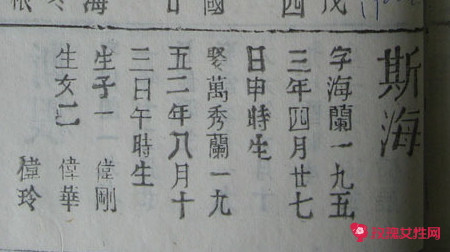 四
國
廿
海
根
斯海
字海蘭一九五
三年四月廿七
日申時生
娶萬秀蘭一九
五二年八月十
三日午時生
生子一 偉剛
生女二 偉華
偉玲
玫瑰女性网